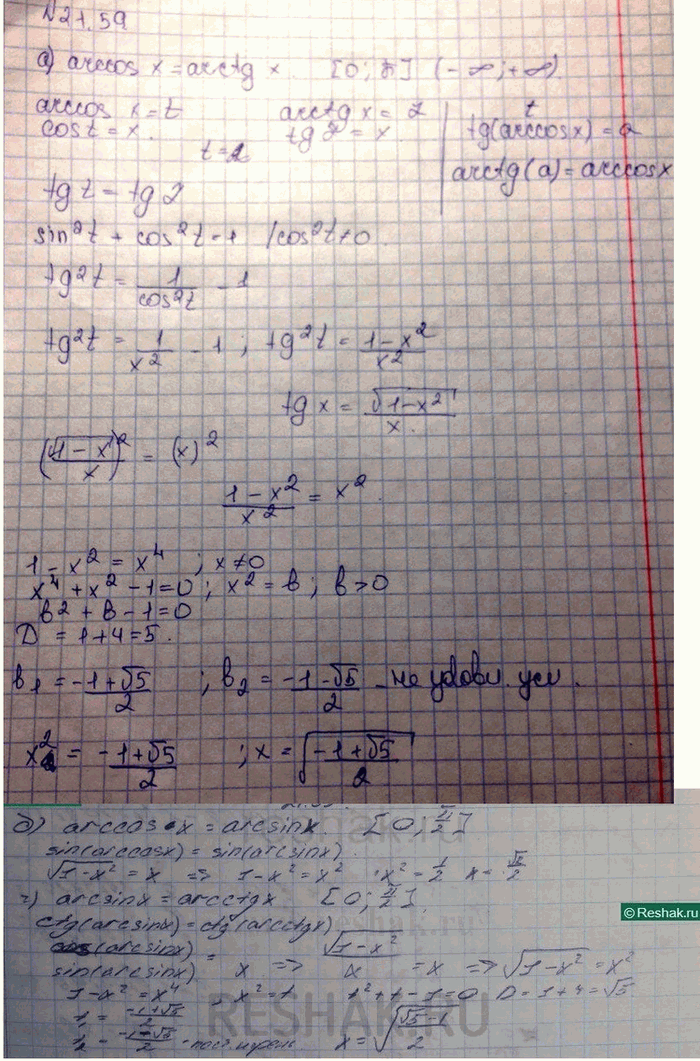 №21.59
а) arccos x = arctg x. [0; π] (-∞; +∞).
arccos x = t    arctg x = 2    t
cos t = x.    tg 2 = x    tg(arccosx) = a
t = 2    arctg(a) = arccosx
tg t = tg 2
sin²t + cos²t = 1 /cos²t ≠ 0.
tg²t = 1/cos²t - 1
tg²t = 1/x² - 1 ; tg²t = (1-x²)/x²
tg x = √(1-x²)/x.
(√(1-x²)/x)² = (x)²
(1-x²)/x² = x².
1 - x² = x⁴ ; x≠0
x⁴ + x² - 1 = 0 ; x² = в ; в > 0
в² + в - 1 = 0
D = 1+4 = 5.
в₁ = (-1+√5)/2 ; в₂ = (-1-√5)/2 - не удовл. усл.
x² = (-1+√5)/2 ; x = √((-1+√5)/2)
б) arccos x = arcsinx. [0; π/2]
sin(arccosx) = sin(arcsinx).
√(1-x²) = x => 1-x² = x² x² = 1/2 x = √2/2
г) arcsinx = arcctgx [0; π/2].
ctg(arcsinx) = ctg(arcctgx)
cos(arcsinx)/sin(arcsinx) = x => √(1-x²)/x = x => √(1-x²) = x²
1-x² = x⁴ , x² = t t²+t-1=0 D = 1+4 = √5
t₁ = (-1+√5)/2
t₂ = (-1-√5)/2 x = √((√5-1)/2)
Reshak.ru
RESHAK.RU